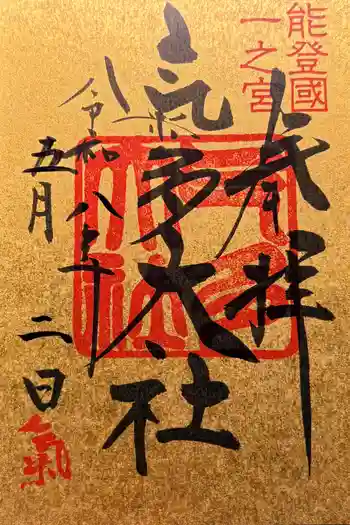 能登國
一之宮
奉拝
氣多大社
令和八年
五月二日
氣